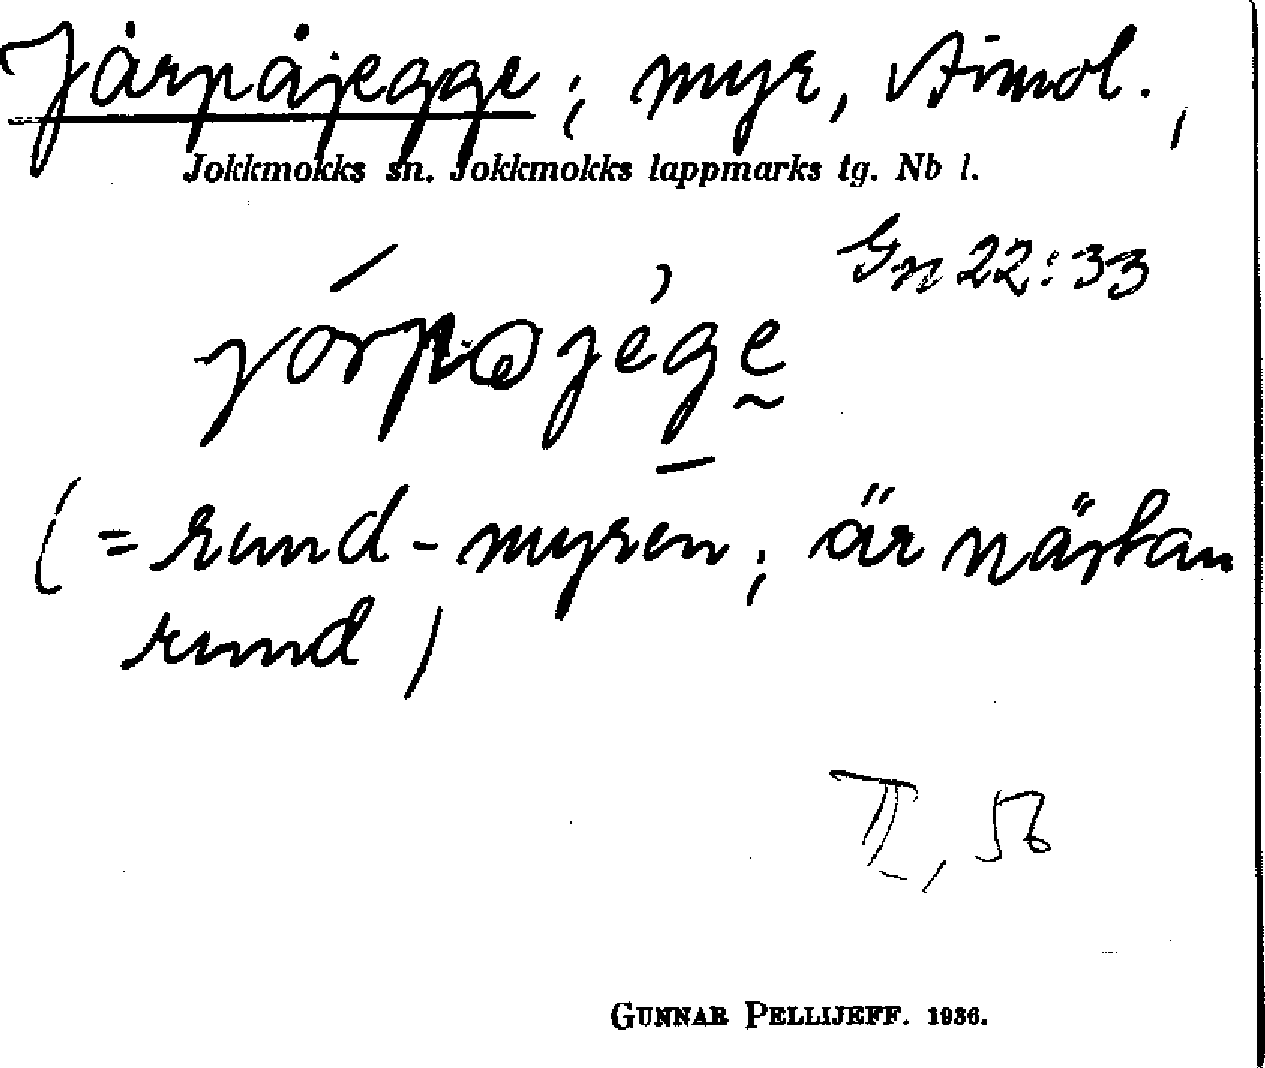 Jårpåjegge; myr,
Jokkmokks sn. Jokkmokks lappmarks tg. Nb l.
Gn 22:33
(= rund-myren; är nästan
rund)
II, 58
GUNNAR PELLIJEFF. 1936.